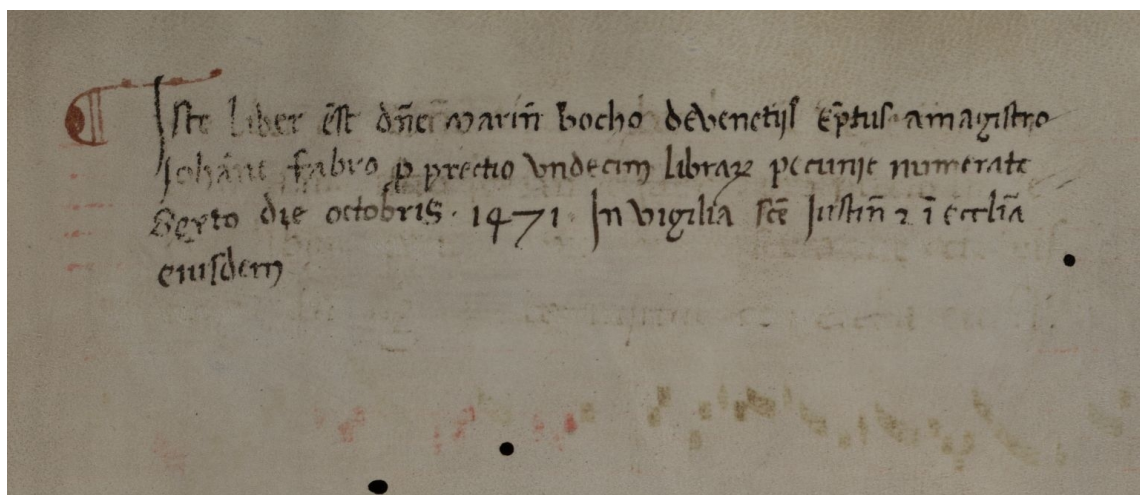 ¶ Iste liber ē̄st dn̄e marin̄ bocho de venetijs ēptus a magistro
Johāne fabro ꝑ prectio vndecim libraꝝ pecunie numerate
Sexto die octobris · 1471 · In vigilia scē Justin̄ ⁊ ī eccl̄ia
eiusdem